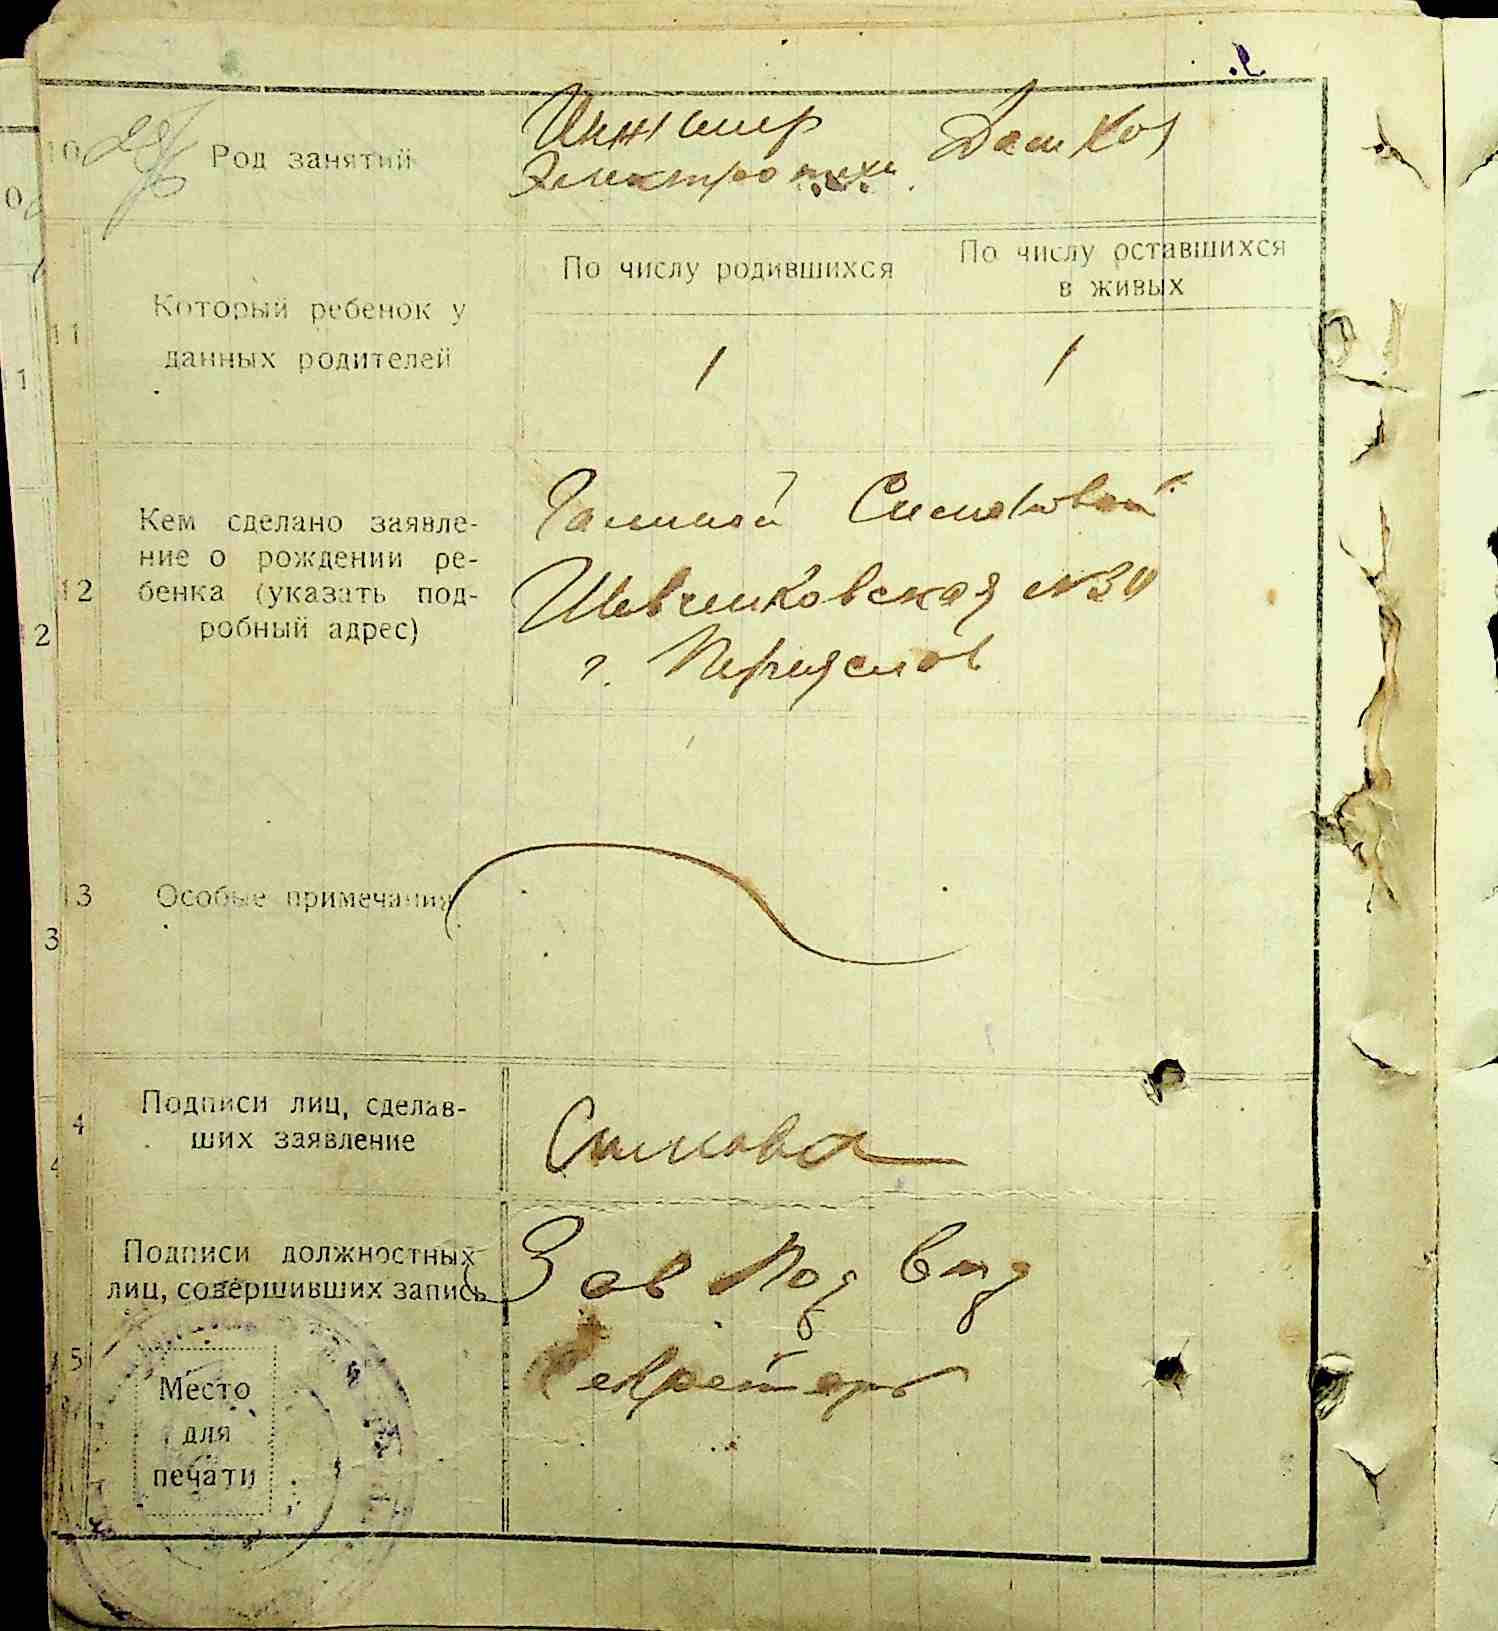 10 Род занятий Инженер
Электротехн.
11 Который ребенок у
данных родителей
По числу родившихся
По числу оставшихся
в живых
1 1
12 Кем сделано заявле-
ние о рождении ре-
бенка (указать под-
робный адрес)
Галиной
Шевченковская №30
г. Переяслов
13 Особые примечания
4 Подписи лиц, сделав-
ших заявление
Симкова
Подписи должностных
лиц, совершивших запись
Зав
Секретарь
5
Место
для
печати
1
2
3